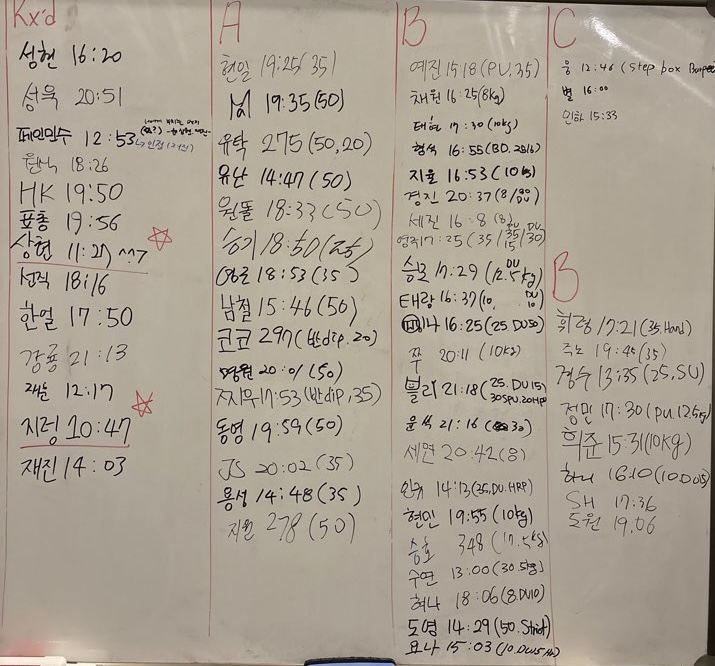 Rx'd
성현 16:20
성욱 20:51
페인민수 12:53
원식 18:26
HK 19:50
표총 19:56
상현 11:27 ^^7
선직 18:16
한얼 17:50
강룡 21:13
재눈 12:17
지렁 10:47
재진 14:03
A
현일 19:25(35)
19:35(50)
유탁 275(50,20)
유난 14:47(50)
원똘 18:33(50)
승기 18:50(25)
18:53(35)
남철 15:46(50)
코코 297(반dip.20)
명원 20:01(50)
17:53(반dip,35)
동영 19:59(50)
JS 20:02(35)
용성 14:48(35)
지원 278(50)
B
예진 15:18(PU,35)
채원 16:25(8kg)
태현 17:30(10kg)
형석 16:55(BD.
지율 16:53(10kg)
경진 20:37(8/
세진 16:8(8)
영직 17:25(35/35/30)
15
승모 17:29(12.5kg)
DU
태랑 16:37(10.
DU
10
나 16:25(25.DU50)
쭈 20:11(10kg)
블리 21:18(25.DU15)
30SPU.20HPU
윤석 21:16(30)
세연 20:42(8)
14:13(35,DU.HRP)
현민 19:55(10kg)
승호 348(17.5kg)
수연 13:00(30.5kg)
혀나 18:06(8.DU10)
도영 14:29(50.Strict)
요나 15:03(10.DU15
C
웅 12:46(Step box Burpee
별 16:00
민하 15:33
B
휘랑 17:21(35.Hand)
주노 19:45(35)
경수 13:35(25,SU)
정민 17:30(PU.12.5kg)
희준 15:31(10kg)
하니 16:10(10.DU15)
SH 17:36
도원 19,06